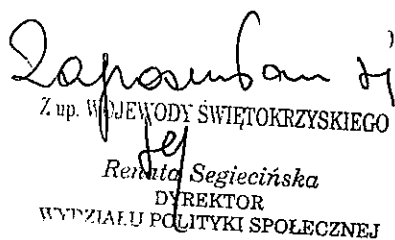 Zapoznałam się
Z up. WOJEWODY ŚWIĘTOKRZYSKIEGO
Renata Segiecińska
DYREKTOR
WYDZIAŁU POLITYKI SPOŁECZNEJ